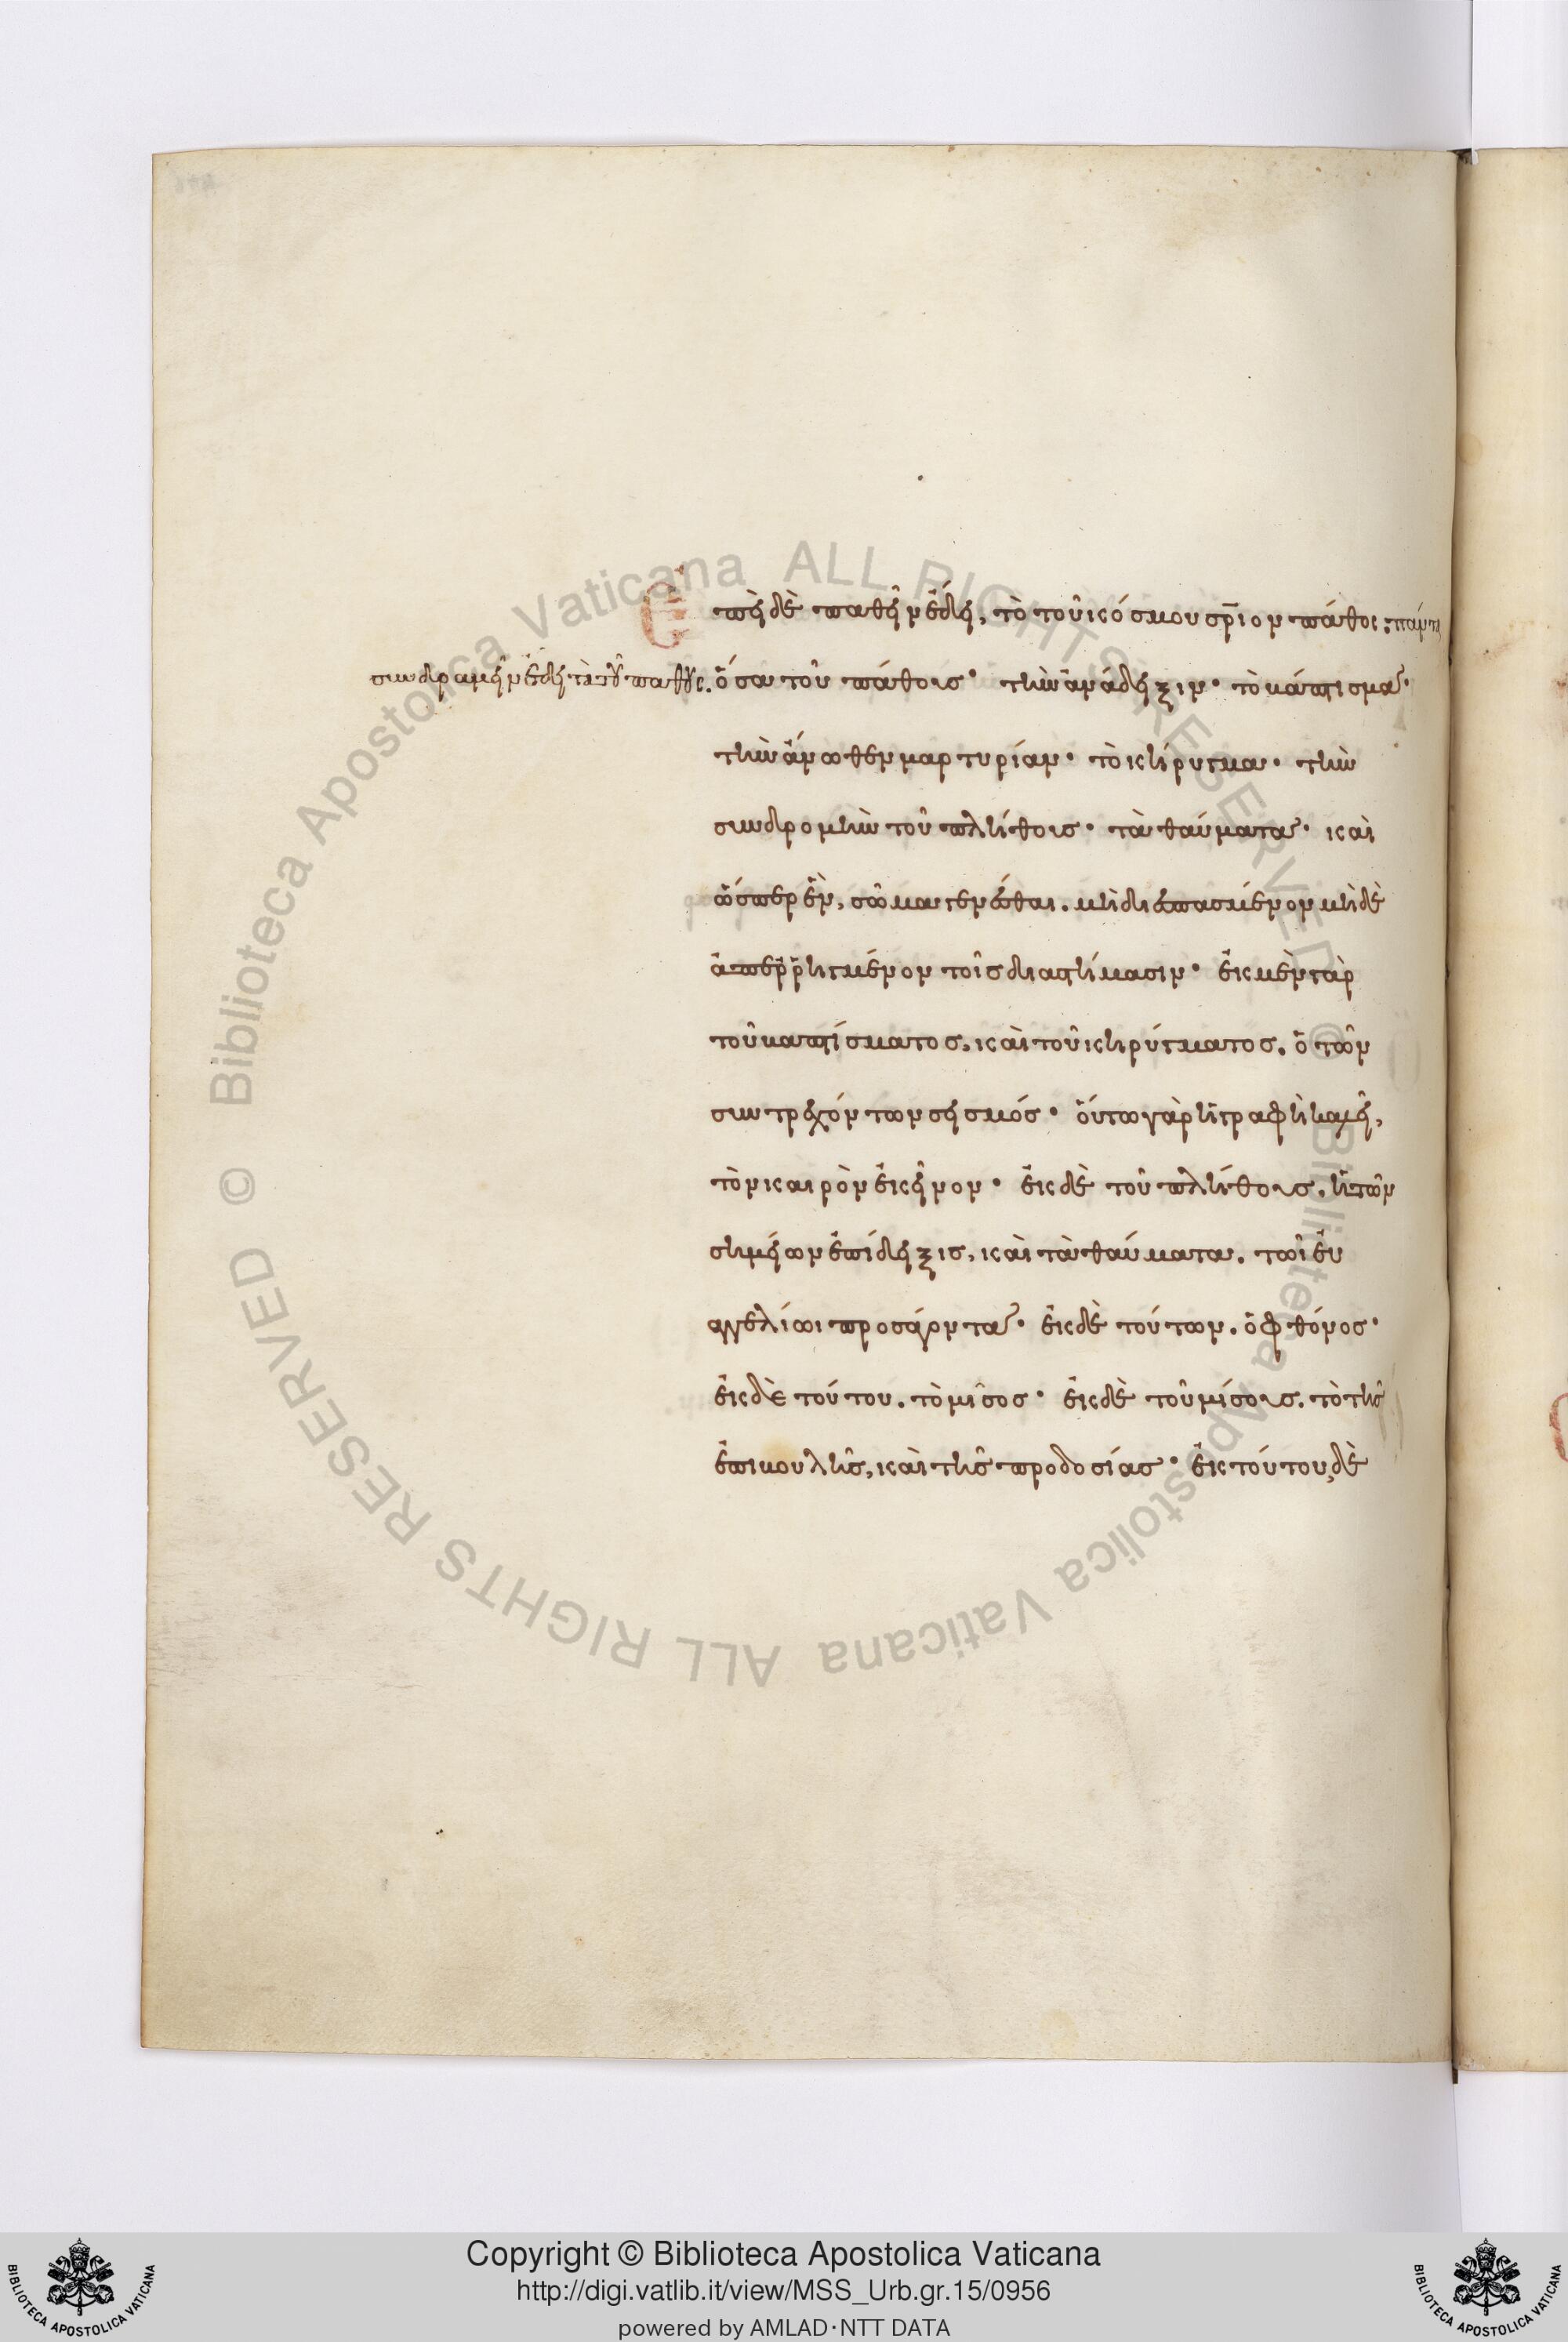 Ἐπεὶ δὲ παθεῖν ἔδει, τὸ τοῦ κόσμου σριον πάθος· πάντα
συνδραμεῖν ἔδει τὰ τοῦ πάθους. ὅσα τοῦ πάθους· τὴν ἀνάδειξιν· τὸ βάπτισμα·
τὴν ἄνωθεν μαρτυρίαν· τὸ κήρυγμα· τὴν
συνδρομὴν τοῦ πλήθους· τὰ θαύματα· καὶ
ὥσπερ ἓν, σῶμα γενέσθαι. μὴ διεσπασμένον μηδὲ
ἀπερρηγμένον τοῖς διαστήμασιν· ἐκ μὲν γὰρ
τοῦ βαπτίσματος, καὶ τοῦ κηρύγματος. ὁ τῶν
συντρεχόντων σεισμός· οὕτω γὰρ ἡ γραφὴ καλεῖ,
τὸν καιρὸν ἐκεῖνον· ἐκ δὲ τοῦ πλήθους. ἡ τῶν
σημείων ἐπίδειξις, καὶ τὰ θαύματα. τῶι εὐ
αγγελίωι προσάγοντα· ἐκ δὲ τούτων. ὁ φθόνος·
ἐκ δὲ τούτου. τὸ μῖσος· ἐκ δὲ τοῦ μίσους. τὸ τῆς
ἐπιβουλῆς, καὶ τῆς προδοσίας· ἐκ τούτου δὲ
Copyright © Biblioteca Apostolica Vaticana
http://digi.vatlib.it/view/MSS_Urb.gr.15/0956
powered by AMLAD·NTT DATA
BIBLIOTECA APOSTOLICA VATICANA
BIBLIOTECA APOSTOLICA VATICANA
Biblioteca Apostolica Vaticana ALL RIGHTS RESERVED © Biblioteca Apostolica Vaticana ALL RIGHTS RESERVED ©